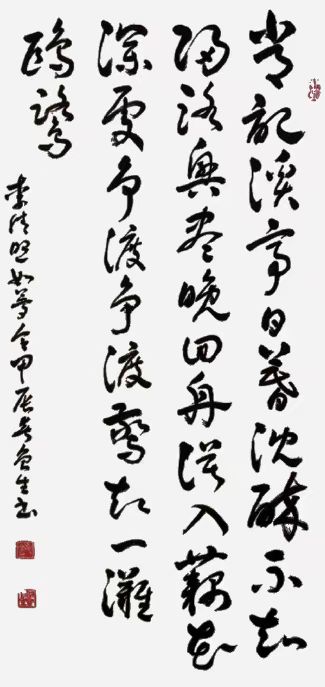 常記溪亭日暮沈醉不知
歸路興盡晚回舟誤入藕花
深處争渡争渡驚起一灘
鷗鷺
李清照如夢令甲辰生书